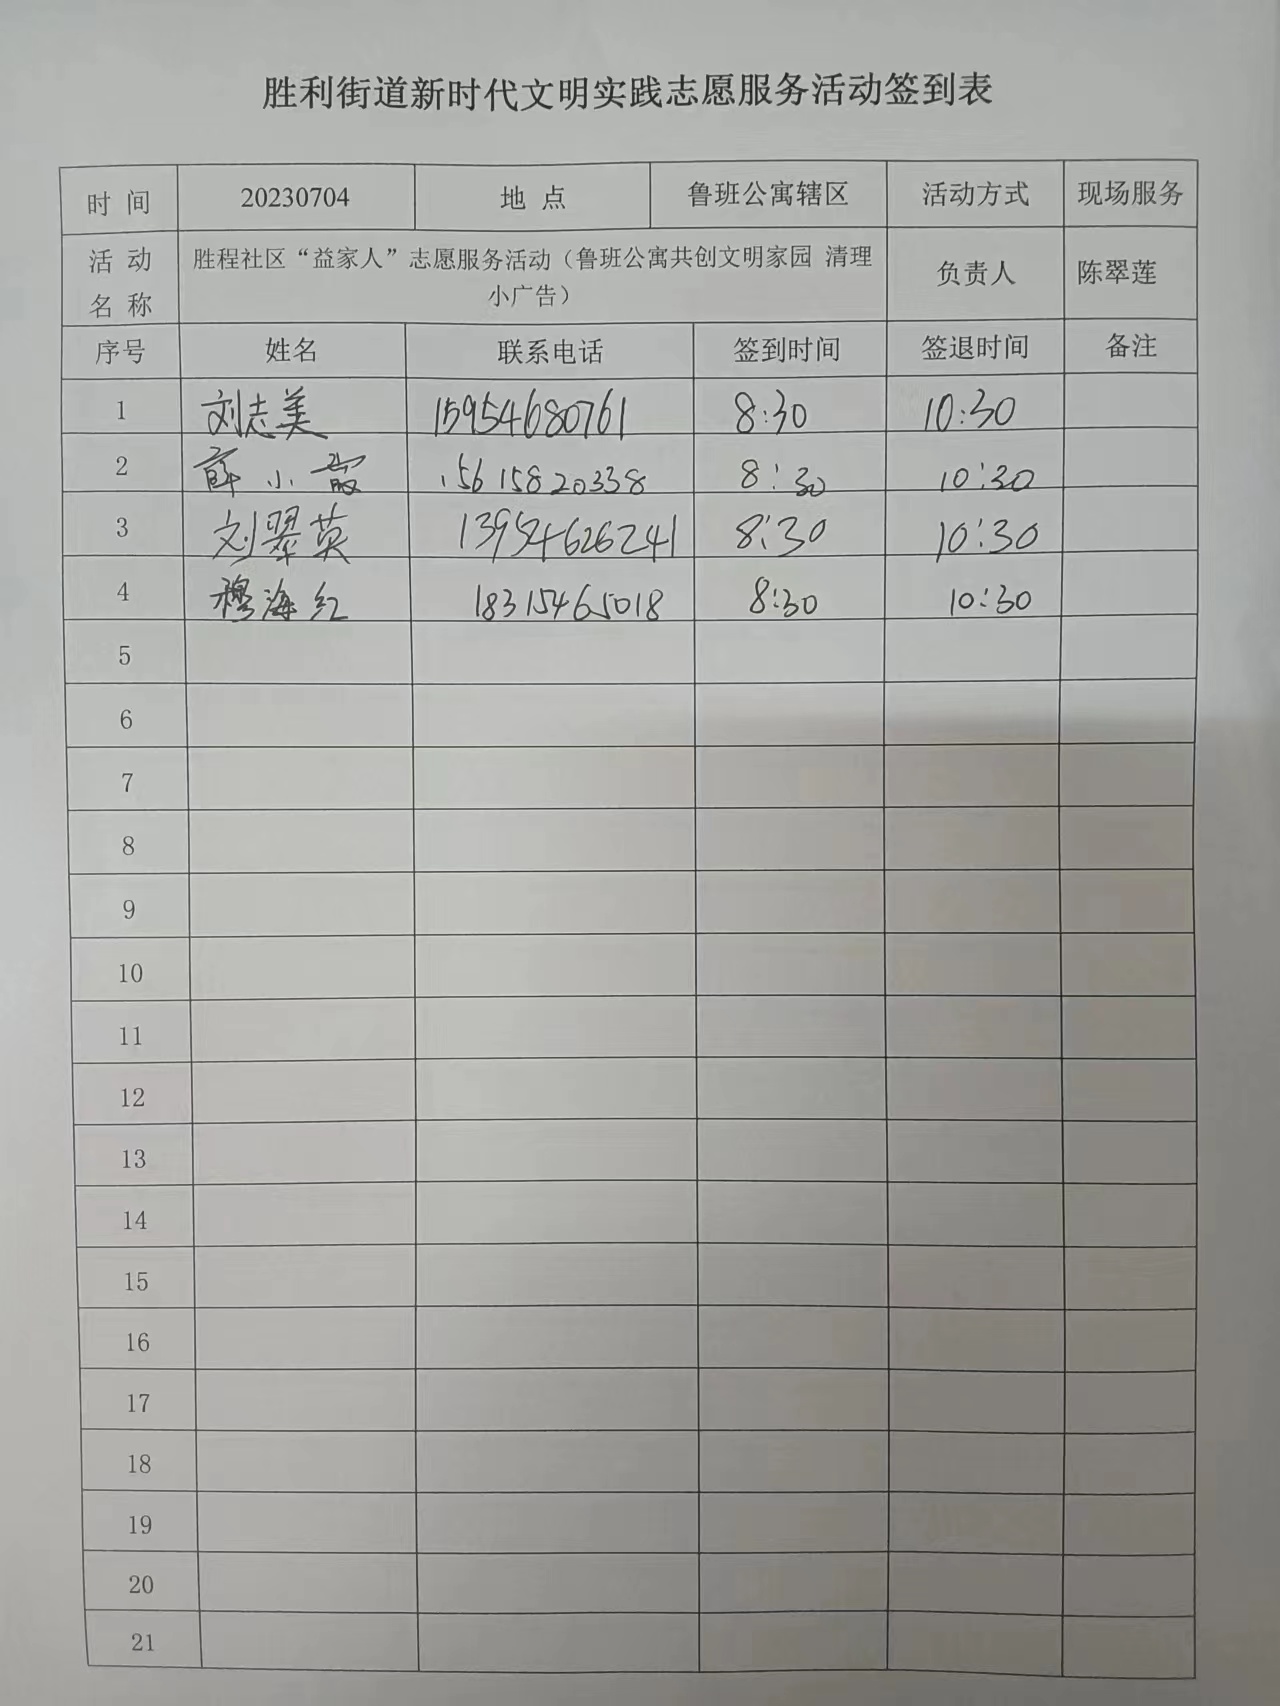 胜利街道新时代文明实践志愿服务活动签到表
时 间 20230704 地 点 鲁班公寓辖区 活动方式 现场服务
活 动 名 称 胜程社区“益家人”志愿服务活动（鲁班公寓共创文明家园 清理 负责人 陈翠莲
小广告）
序号 姓名 联系电话 签到时间 签退时间 备注
1 刘志美 15954680761 8:30 10:30
2 薛小 15615820338 8:30 10:30
3 刘翠英 13954626241 8:30 10:30
4 穆海红 18315465018 8:30 10:30
5
6
7
8
9
10
11
12
13
14
15
16
17
18
19
20
21